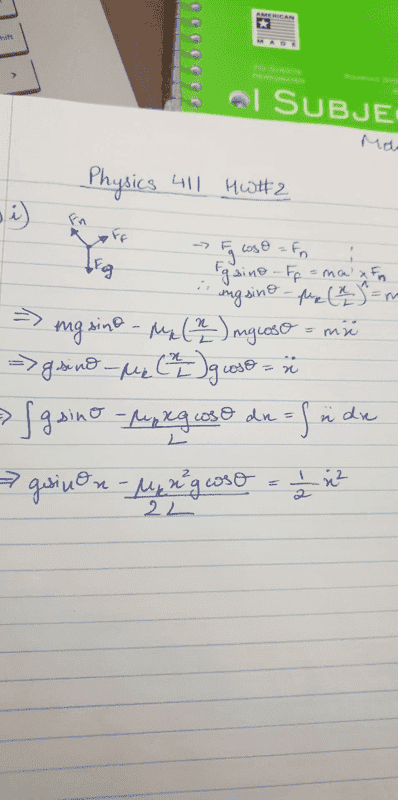 AMERICAN
MADE
1 SUBJE
Physics 411 HW#2
i)
Fn
Ff
Fg
→ Fg cosθ = Fn ;
Fg sinθ - Ff = ma
∴ mg sinθ - μk (x/L) Fn = m
⇒ mg sinθ - μk (x/L) mg cosθ = mẍ
⇒ g sinθ - μk (x/L) g cosθ = ẍ
⇒ ∫ g sinθ - μk x g cosθ / L dx = ∫ ẍ dx
⇒ g sinθ x - μk x² g cosθ / 2L = 1/2 ẋ²